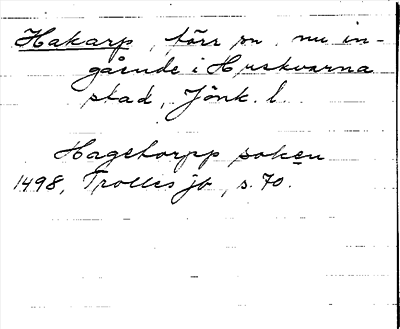 Hakarp, förr sn, nu in-
gående i Huskvarna
stad, Jönk. l.
Hagetorpp soken
1498, Trolles jb, s. 70.